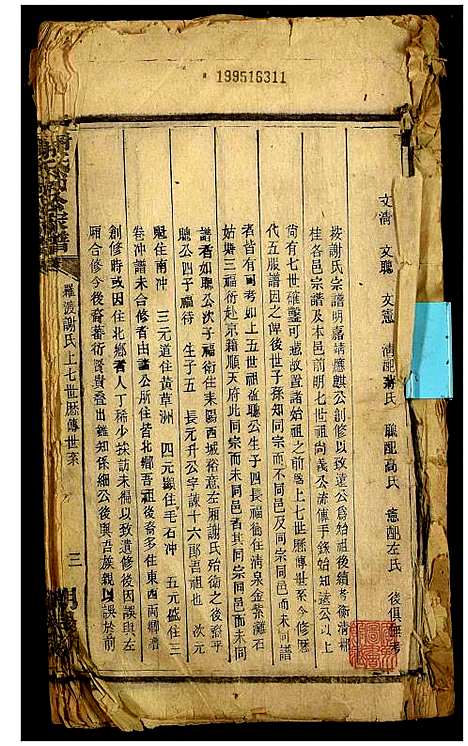 199516311
文清 文聽 文憲 清配蕭氏 聽配高氏 憲配左氏 後俱無考
按謝氏宗譜明嘉靖應麒公創修以致遠公為始祖後續考衡清郴
桂各邑宗譜及本邑前明七世祖尚義公流傳手錄始知遠公以上
尚有七世確鑿可據故置諸始祖之前為上七世歷傳世系今修歷
代五服譜因之俾後世子孫知同宗而不同邑及同宗同邑而未同譜
者皆有可考如上五世祖益聽公生子四長福衛住清泉金紫灘石
姑塘三福衍赴京籍順天府此同宗而未同邑者其同宗同邑而未同
譜者如聽公次子福衡住耒陽西城裕意左厢謝氏始衛之後裔平
聽公四子福待 生子五 長元升公字諫十六郎吾祖也 次元
魁住南冲 三元道住黃草洲 四元顯住毛石冲 五元盛住三
卷冲譜未合修者由諸公所住皆北鄉吾祖後裔多住東西兩鄉譜
創修時或因住北鄉者人丁稀少採訪未徧以致遺修後因誤與左
厢合修今後裔蕃衍賢貴叠出鑑知係細公後與吾族親以誤於前
羅渡謝氏上七世歷傳世系
三